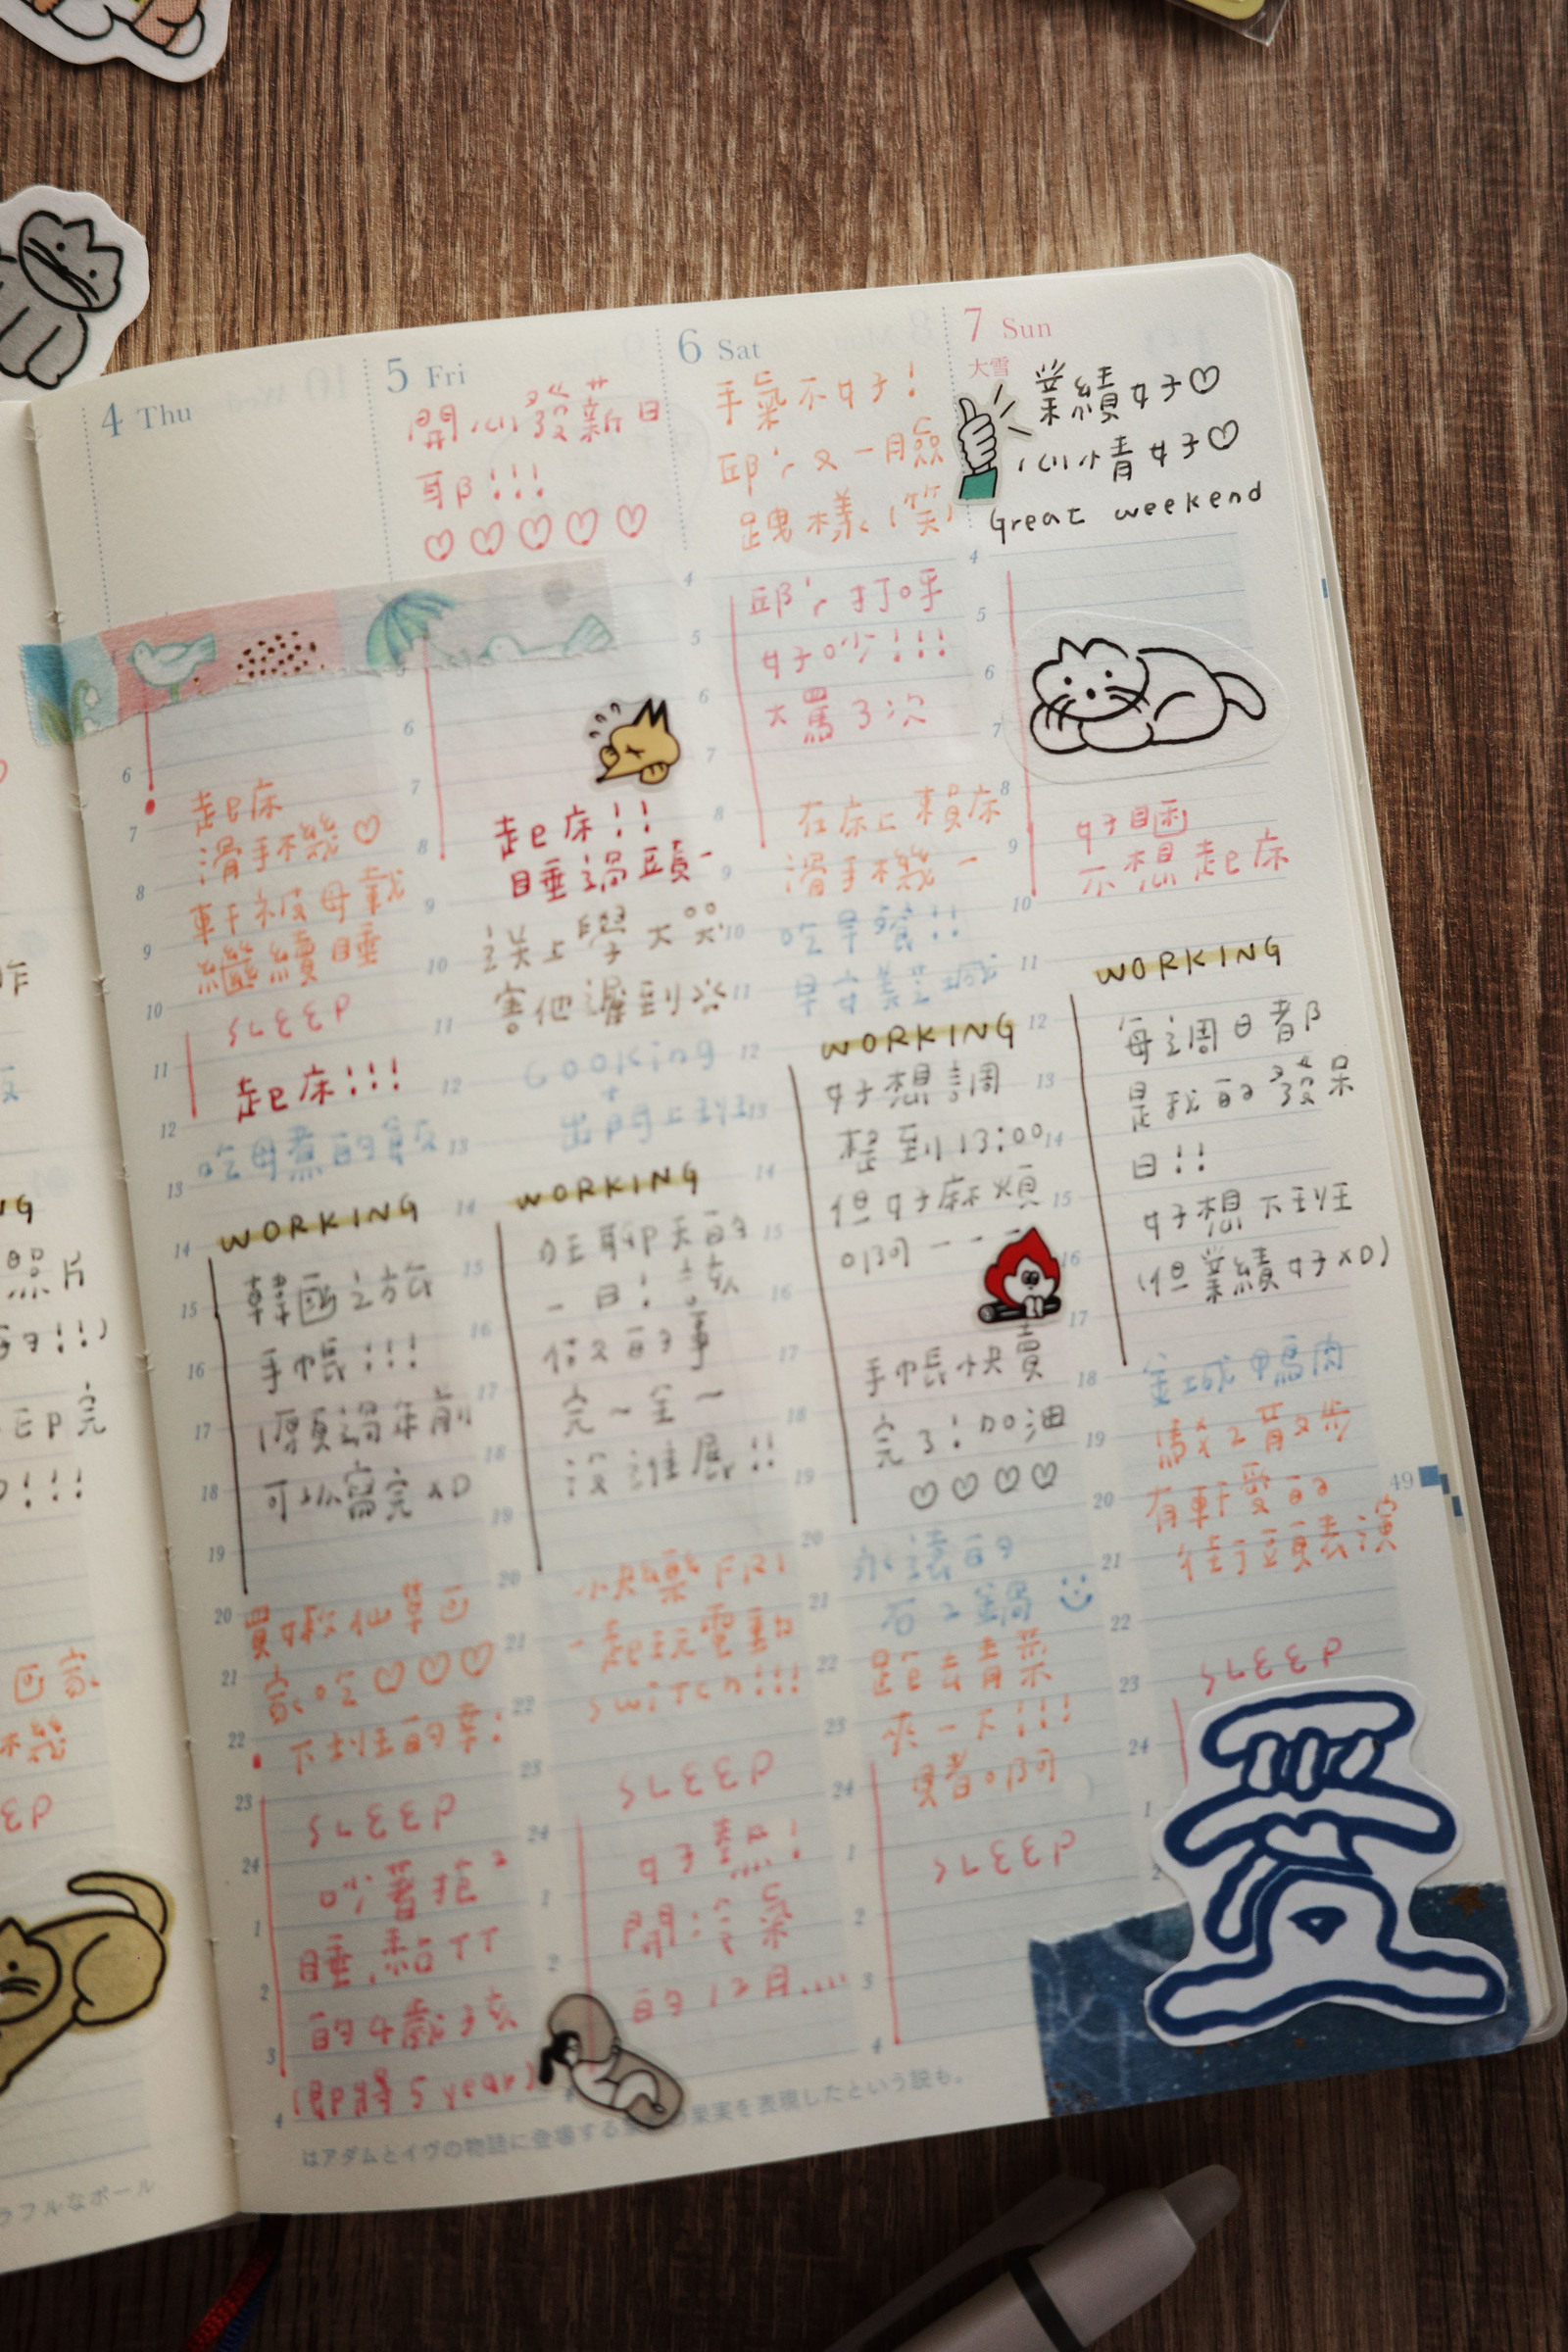 4 Thu
起床
滑手機♡
軒被母載
繼續睡
SLEEP
起床!!!
吃母煮的飯
WORKING
韓國之旅
手帳!!!
願過年前
可以寫完XD
買好軒仙草回
家吃♡♡♡
下班的幸:
SLEEP
吵著抱
睡,黏TT
的4歲孩
(即將5 year)
5 Fri
開心發新日
耶!!!
♡♡♡♡♡
起床!!
睡過頭~
送上學大哭
害他遲到
Cooking
+
出門上班
WORKING
在聊天的
一日!該
做的事
完~全~
沒進展!!
快樂FRI
一起玩電動
switch!!!
SLEEP
好熱!
開冷氣
的12月....
6 Sat
手氣不好!
邱又一臉
跩樣(笑)
邱打呼
好吵!!!
大罵3次
在床上賴床
滑手機~
吃早餐!!
早安美芝城
WORKING
好想調
整到13:00
但好麻煩
啊---
手帳快賣
完了!加油
♡♡♡♡
永遠的
石二鍋
跑去青菜
夾一下!!!
SLEEP
7 Sun
大雪
業績好♡
心情好♡
Great weekend
好睏
不想起床
WORKING
每週日都
是我的發呆
日!!
好想下班
(但業績好XD)
金城鴨肉
騎2散步
有軒愛的
街頭表演
SLEEP
愛
49
はアダムとイヴの物語に登場する
果実を表現したという説も。
ラフルなボール